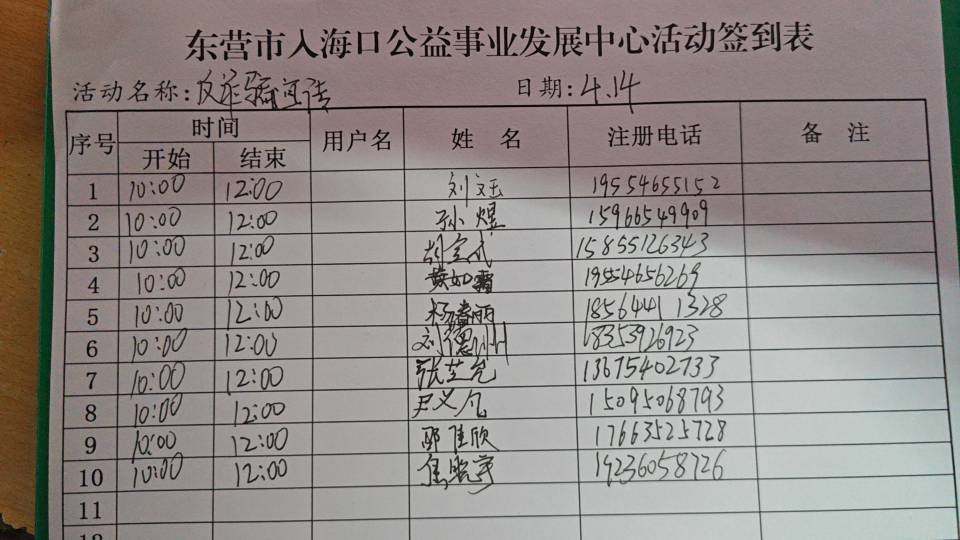 东营市入海口公益事业发展中心活动签到表
活动名称:反诈骗宣传 日期:4.14
序号 时间 用户名 姓 名 注册电话 备 注
开始 结束
1 10:00 12:00 刘珏 19554655152
2 10:00 12:00 孙煜 15966549909
3 10:00 12:00 15855126343
4 10:00 12:00 黄如霜 19554656269
5 10:00 12:00 杨春丽 18564411328
6 10:00 12:00 刘德州 18353926923
7 10:00 12:00 张芝尧 13675402733
8 10:00 12:00 尹义凡 15095068793
9 10:00 12:00 佳欣 17663525728
10 10:00 12:00 19236058726
11